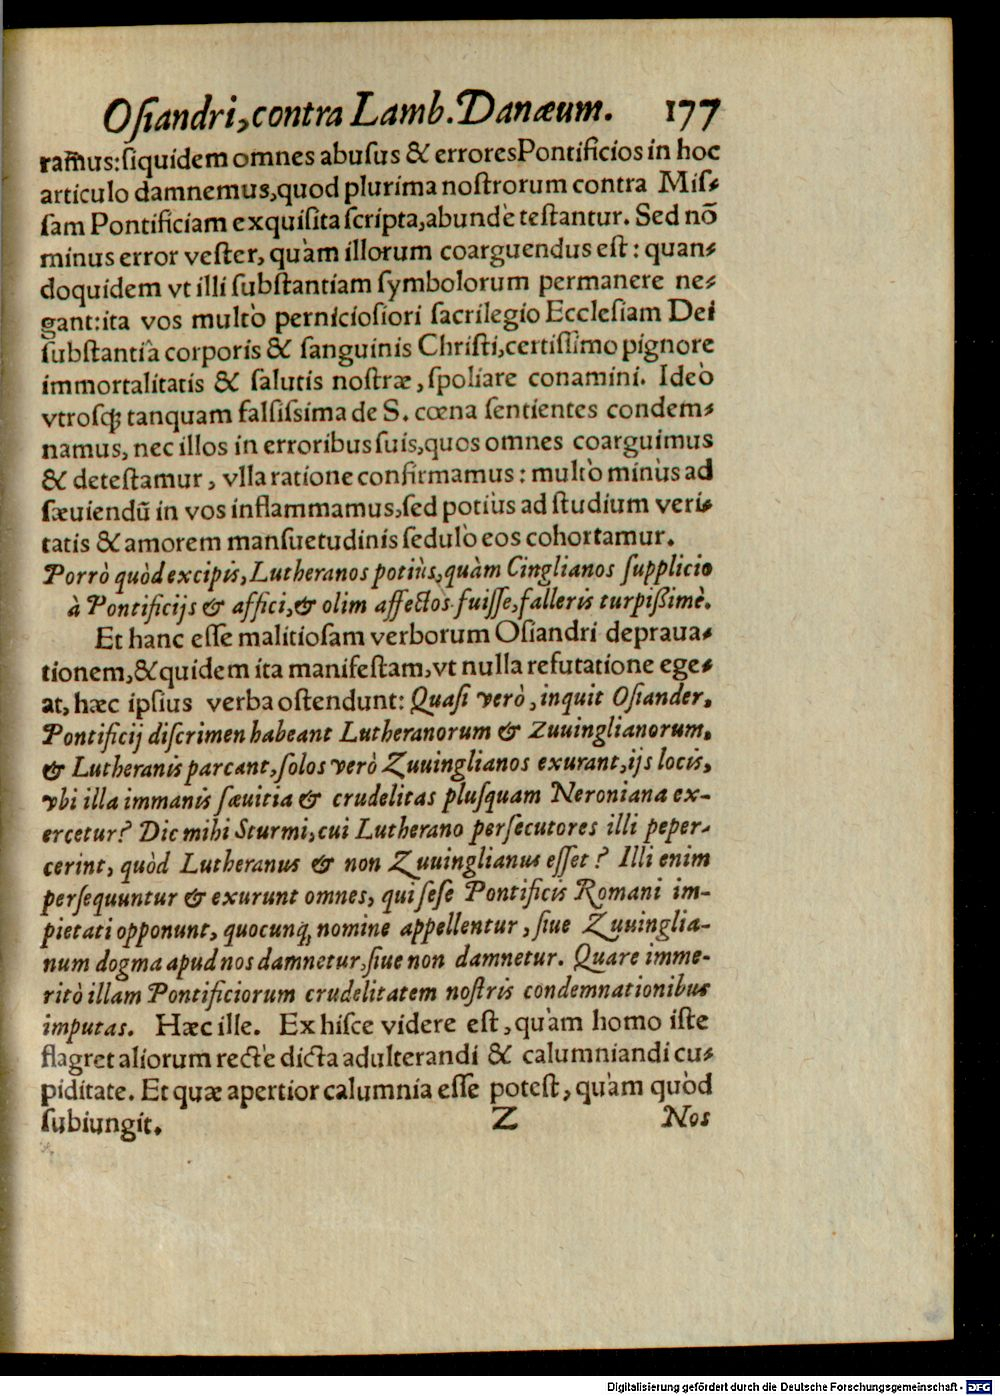 Oſiandri, contra Lamb. Danæum. 177
ram̃us: ſiquidem omnes abuſus & errores Pontificios in hoc
articulo damnemus, quod plurima noſtrorum contra Miſ-
ſam Pontificiam exquiſita ſcripta, abundè teſtantur. Sed nō
minus error veſter, quàm illorum coarguendus eſt: quan-
doquidem vt illi ſubſtantiam ſymbolorum permanere ne-
gant: ita vos multò pernicioſiori ſacrilegio Eccleſiam Dei
ſubſtantiâ corporis & ſanguinis Chriſti, certiſſimo pignore
immortalitatis & ſalutis noſtræ, ſpoliare conamini. Ideò
vtroſq; tanquam falſiſsima de S. cœna ſentientes condem-
namus, nec illos in erroribus ſuis, quos omnes coarguimus
& deteſtamur, vlla ratione confirmamus: multò minùs ad
ſæuiendū in vos inflammamus, ſed potiùs ad ſtudium veri-
tatis & amorem manſuetudinis ſedulò eos cohortamur.
Porrò quòd excipis, Lutheranos potiùs, quàm Cinglianos ſupplicio
à Pontificijs & affici, & olim affectos fuiſſe, falleris turpißimè.
Et hanc eſſe malitioſam verborum Oſiandri depraua-
tionem, & quidem ita manifeſtam, vt nulla refutatione ege-
at, hæc ipſius verba oſtendunt: Quaſi verò, inquit Oſiander,
Pontificij diſcrimen habeant Lutheranorum & Zuuinglianorum,
& Lutheranis parcant, ſolos verò Zuuinglianos exurant, ijs locis,
vbi illa immanis ſæuitia & crudelitas pluſquam Neroniana ex-
ercetur? Dic mihi Sturmi, cui Lutherano perſecutores illi peper-
cerint, quòd Lutheranus & non Zuuinglianus eſſet? Illi enim
perſequuntur & exurunt omnes, qui ſeſe Pontificis Romani im-
pietati opponunt, quocunq; nomine appellentur, ſiue Zuuinglia-
num dogma apud nos damnetur, ſiue non damnetur. Quare imme-
ritò illam Pontificiorum crudelitatem noſtris condemnationibus
imputas. Hæc ille. Ex hiſce videre eſt, quàm homo iſte
flagret aliorum rectè dicta adulterandi & calumniandi cu-
piditate. Et quæ apertior calumnia eſſe poteſt, quàm quòd
ſubiungit. Z Nos
Digitalisierung gefördert durch die Deutsche Forschungsgemeinschaft - DFG